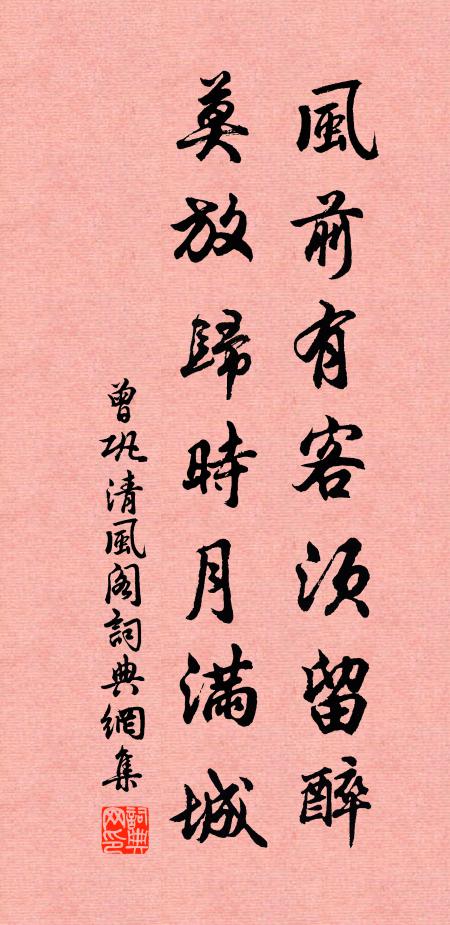 風前有客須留醉
莫放歸時月滿城
曾巩清風阁詞典網集
詞典网印